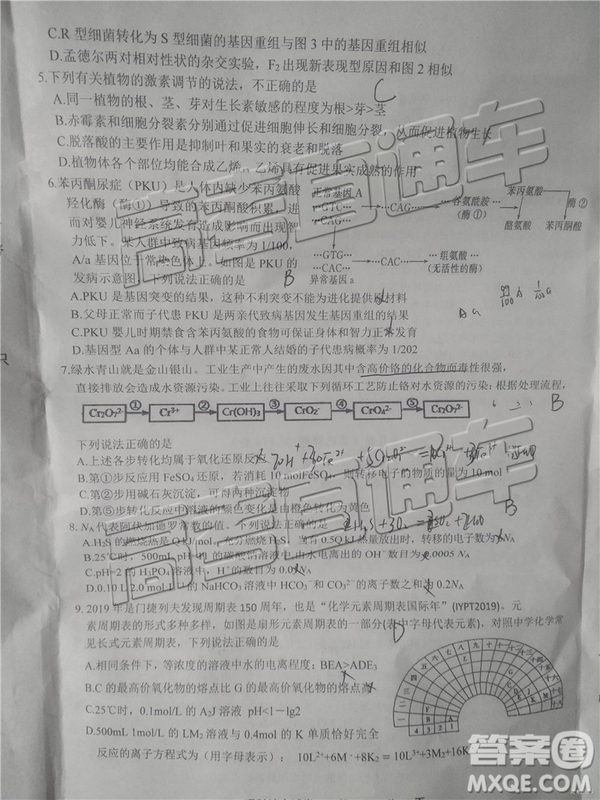 C.R 型细菌转化为 S 型细菌的基因重组与图 3 中的基因重组相似
D.孟德尔两对相对性状的杂交实验，F₂出现新表现型原因和图 2 相似
5.下列有关植物的激素调节的说法，不正确的是 C
A.同一植物的根、茎、芽对生长素敏感的程度为根>芽>茎
B.赤霉素和细胞分裂素分别通过促进细胞伸长和细胞分裂，从而促进植物生长
C.脱落酸的主要作用是抑制叶和果实的衰老和脱落
D.植物体各个部位均能合成乙烯，乙烯具有促进果实成熟的作用
6.苯丙酮尿症（PKU）是人体内缺少苯丙氨酸
羟化酶（酶①）导致的苯丙酮酸积累，进
而对婴儿神经系统发育造成影响而致智
力低下。某人群中致病基因频率为 1/100,
A/a 基因位于常染色体上。如图是 PKU 的
发病示意图，下列说法正确的是 B
正常基因 A
…GTC…
…CAG…
…CAG…
各氨酰胺
(酶 ①)
苯丙氨酸
酶 ②
酪氨酸
苯丙酮酸
…GTG…
…CAC…
…CAC…
组氨酸
(无活性的酶)
异常基因 a
A.PKU 是基因突变的结果，这种不利突变不能为进化提供原材料
B.父母正常而子代患 PKU 是两亲代致病基因发生基因重组的结果
C.PKU 婴儿时期禁食含苯丙氨酸的食物可保证身体和智力正常发育
D.基因型 Aa 的个体与人群中某正常人结婚的子代患病概率为 1/202
99/100 A 1/100 a
Aa
7.绿水青山就是金山银山。工业生产中产生的废水因其中含高价铬的化合物而毒性很强，
直接排放会造成水资源污染。工业上往往采取下列循环工艺防止铬对水资源的污染：根据处理流程，
Cr₂O₇²⁻ ① Cr³⁺ ② Cr(OH)₃ ③ CrO₂⁻ ④ CrO₄²⁻ ⑤ Cr₂O₇²⁻ B
下列说法正确的是
A.上述各步转化均属于氧化还原反应
B.第①步反应用 FeSO₄ 还原，若消耗 10 molFeSO₄，则转移电子的物质的量为 10 mol
C.第②步用碱石灰沉淀，可得两种沉淀物
D.第⑤步转化反应中溶液的颜色变化是由橙色转化为黄色
8. Nᴀ 代表阿伏加德罗常数的值，下列说法正确的是 B
A.H₂S 的燃烧热是 Q kJ/mol，充分燃烧 H₂S，当有 0.5Q kJ 热量放出时，转移的电子数为 Nᴀ
B.25℃时，500mL pH=的碳酸钠溶液中由水电离出的 OH⁻数目为 0.0005 Nᴀ
C.pH=2 的 H₃PO₄溶液中，H⁺的数目为 0.01Nᴀ
D.0.10 L 2.0 mol·L⁻¹的 NaHCO₃溶液中 HCO₃⁻和 CO₃²⁻的离子数之和为 0.2Nᴀ
9. 2019 年是门捷列夫发现周期表 150 周年，也是“化学元素周期表国际年”(IYPT2019)。元
素周期表的形式多种多样，如图是扇形元素周期表的一部分(表中字母代表元素)，对照中学化学常
见长式元素周期表，下列说法正确的是 D
A.相同条件下，等浓度的溶液中水的电离程度：BEA>ADE₃
B.C 的最高价氧化物的熔点比 G 的最高价氧化物的熔点高
C.25℃时，0.1mol/L 的 A₂J 溶液 pH<1－lg2
D.500mL 1mol/L 的 LM₂ 溶液与 0.4mol 的 K 单质恰好完全
反应的离子方程式为（用字母表示）： 10L²⁺+6M⁻+8K₂＝10L³⁺+3M₂+16K⁻
高考直通车
答案圈
MXQE.COM